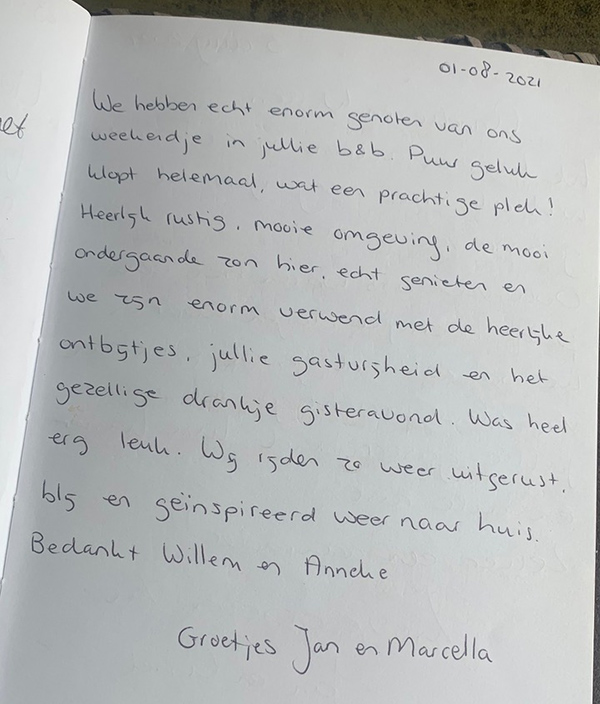 01-08-2021
We hebben echt enorm genoten van ons
weekendje in jullie b&b. Puur geluk
klopt helemaal, wat een prachtige plek!
Heerlijk rustig, mooie omgeving, de mooi
ondergaande zon hier, echt genieten en
we zijn enorm verwend met de heerlijke
ontbijtjes, jullie gastvrijheid en het
gezellige drankje gisteravond. Was heel
erg leuk. Wij rijden zo weer uitgerust,
blij en geïnspireerd weer naar huis.
Bedankt Willem en Anneke
Groetjes Jan en Marcella